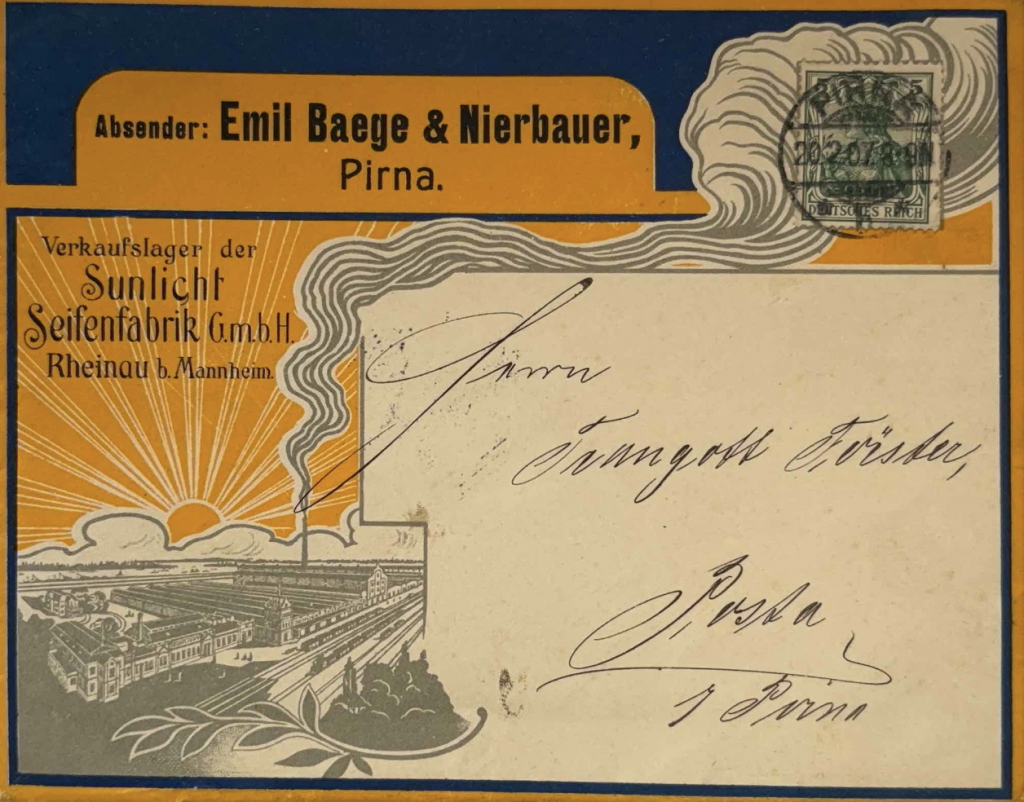 Absender: Emil Baege & Nierbauer,
Pirna.
5 5
PIRNA
20.2.07. 8-9N
DEUTSCHES REICH
Verkaufslager der
Sunlicht
Seifenfabrik G.m.b.H.
Rheinau b. Mannheim.
Herrn
Traugott Förster,
Posta
Pirna